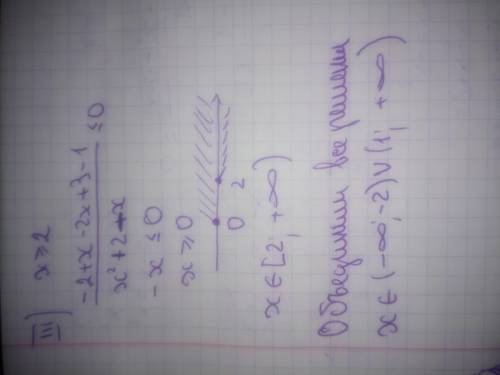 III) x ≥ 2
-2+x-2x+3-1 ≤ 0
x²+2-x
-x ≤ 0
x ≥ 0
0 2
x ∈ [2; +∞)
Объединим все решения
x ∈ (-∞; -2) ∪ (1; +∞)